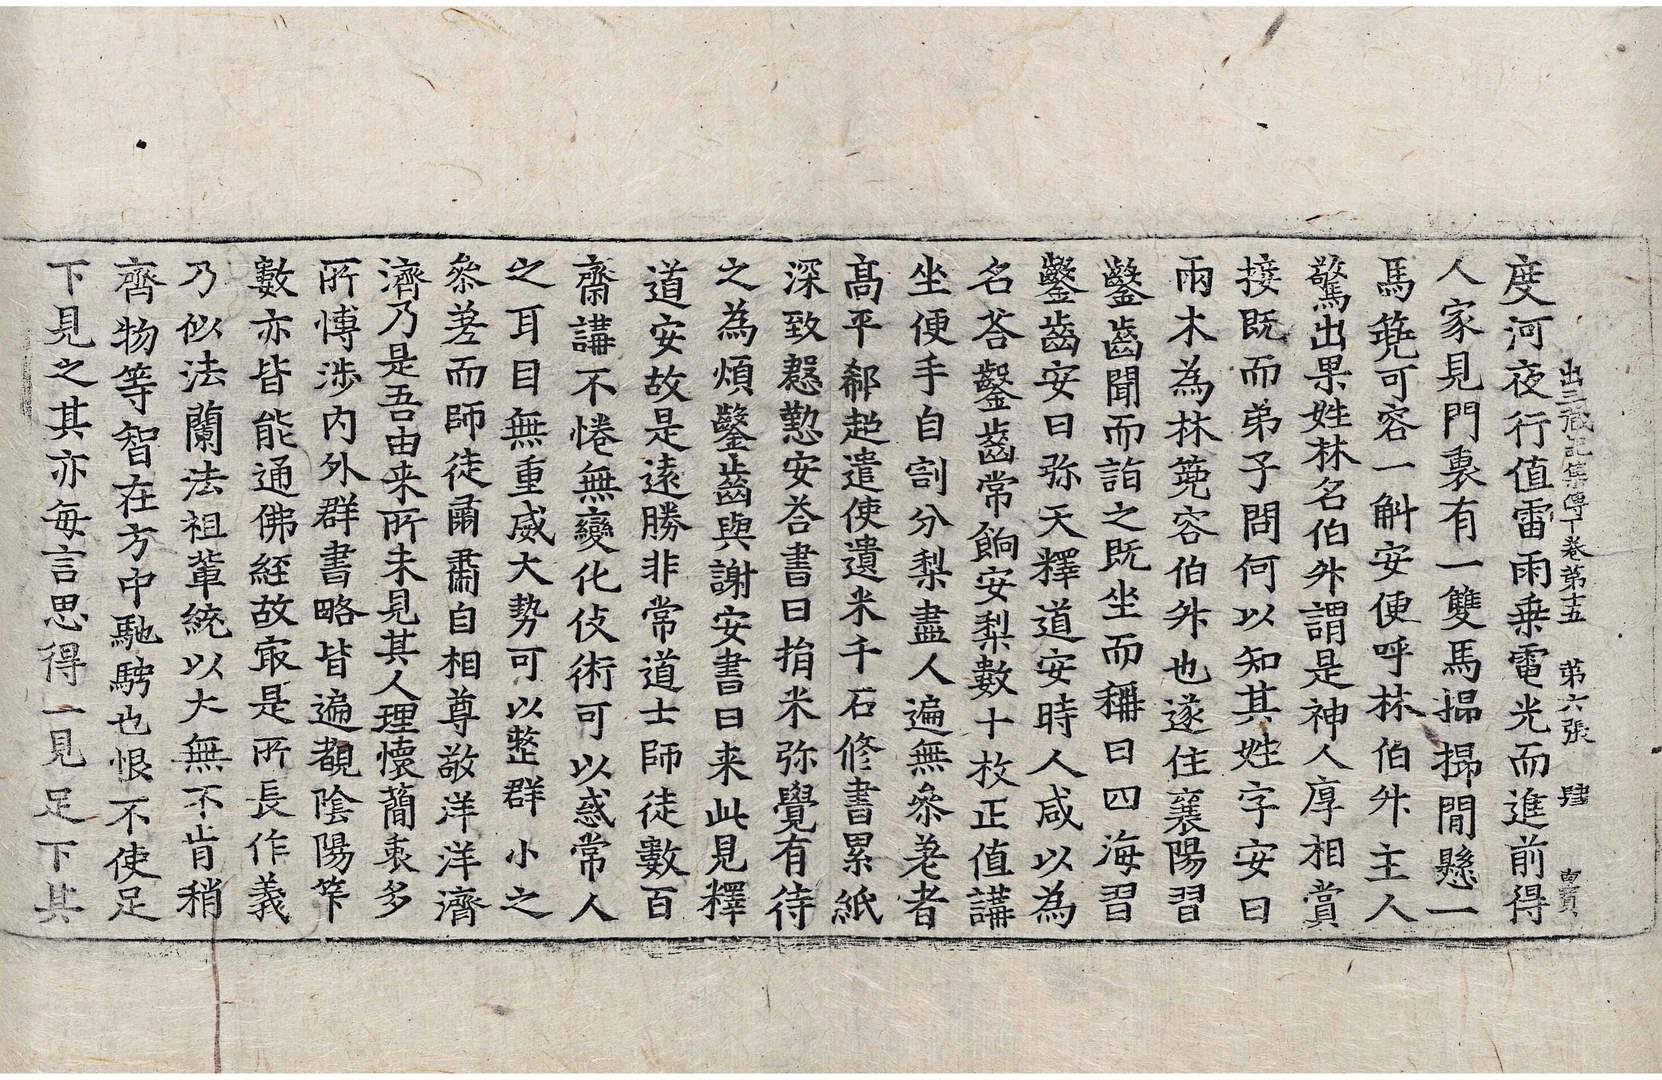 出三藏記集傳下卷第十五　第六張　肆
度河夜行值雷雨乗電光而進前得
人家見門裏有一雙馬㭿㭿間懸一
馬篼可容一斛安便呼林伯升主人
驚出果姓林名伯升謂是神人厚相賞
接既而弟子問何以知其姓字安曰
兩木為林篼容伯升也遂住襄陽習
鑿齒聞而詣之既坐而稱曰四海習
鑿齒安曰弥天釋道安時人咸以為
名荅鑿齒常餉安梨數十枚正值講
坐便手自割分梨盡人遍無叅差者
高平郗超遣使遺米千石修書累紙
深致慇懃安荅書曰損米弥覺有待
之為煩鑿齒與謝安書曰来此見釋
道安故是遠勝非常道士師徒數百
齋講不惓無變化伎術可以惑常人
之耳目無重威大勢可以整群小之
叅差而師徒肅肅自相尊敬洋洋濟
濟乃是吾由来所未見其人理懷簡衷多
所博涉内外群書略皆遍覩陰陽筭
數亦皆能通佛經故㝡是所長作義
乃似法蘭法祖輩統以大無不肯稍
齊物等智在方中馳騁也恨不使足
下見之其亦每言思得一見足下其